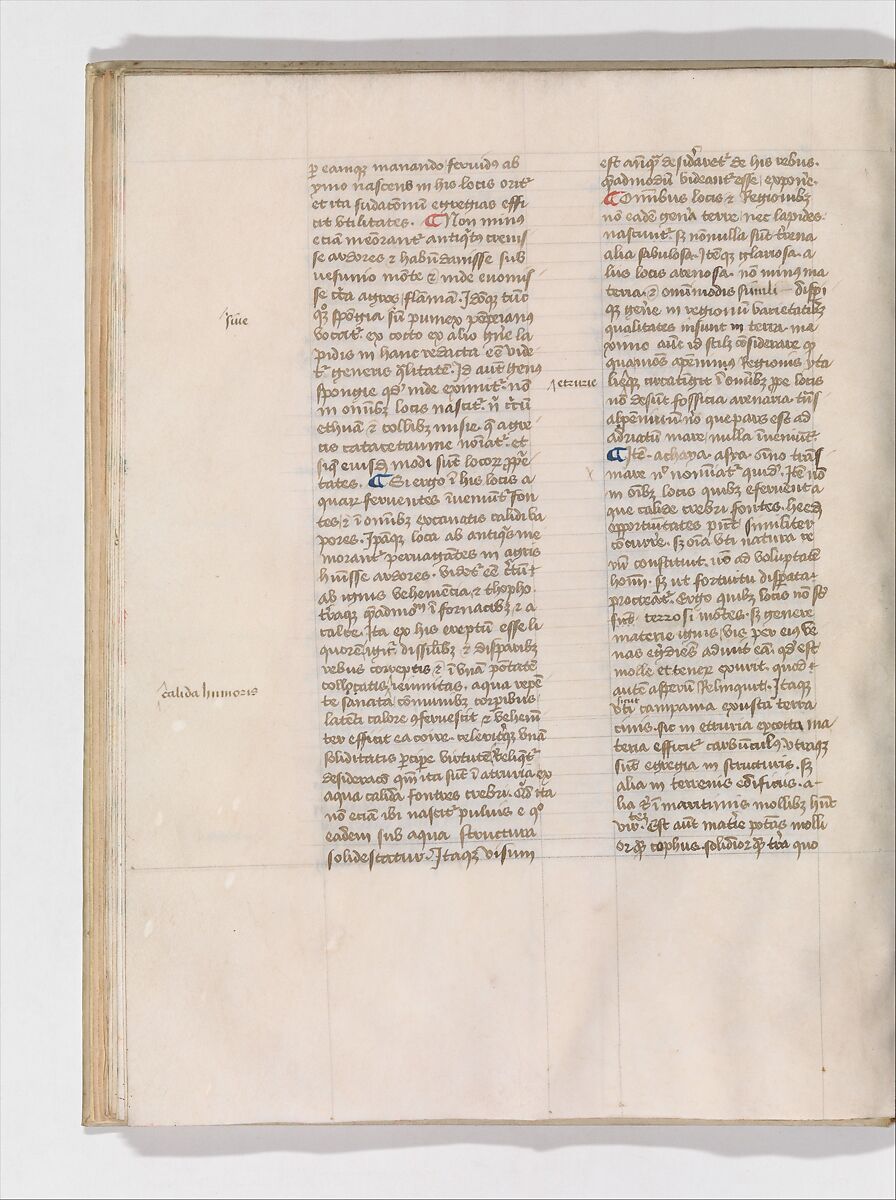 p eamq manando feruidus ab
ymo nascens in his locis orit
et ita sudationum egregias effi
cit vtilitates. ¶ Non minus
etiam memorant antiqtus creuis
se ardores & habundauisse sub
vesuuio monte & inde euomis
se circa agros flamam. Idoq tuc
qo spongia siue pumex pompeianus
vocat. ex cocto ex alio gnere la
pidis in hanc redacta ee vide
tur generis qlitate. Id aut genus
spongie qd inde eximit. non
in omibz locis nascit. n circu
ethna & collibz misie. q a gre
cis catacecaumene noiat. et
siq eiusd modi sut locor prope
tates. ¶ Si ergo i his locis a
quar feruentes iueniut fon
tes & i omibz excauatis calidi va
pores. Ipaq loca ab antiqis me
morant peruagates in agris
huisse ardores. videt ee certu
ab ignis vehemecia & thopho
terraq qadmom i fornacibz & a
calce. Ita ex his ereptu esse li
quore. igit dissilibz & disparibz
rebus correptis & i vnam potate
collocatis ieiunitas. aqua repe
te saciata comunibz corpibus
lateti calore gferuescit & vehem
ter efficit ea coire. celeritq vna
soliditatis pcipe virtute. reliqt
desideraco qm ita sut i etruria ex
aqua calida fontes crebri. Qd ita
no ecia ibi nascit puluis e qo
eadem sub aqua structura
solidescatur. Itaq visum
siue
calida humoris
est anq desideraret de his rebus.
qadmodu videant esse expone.
¶ Omibus locis & Regionibz
no eade genera terre nec lapides
nascunt. Sz nonulla sut terrena
alia sabulosa. Iteq glariosa. a
liis locis arenosa. no minus ma
teria. & omi modis simili dispi
q genere in regionu varietatibz
qualitates insunt in terra. ma
xime aut id sic licet considerare q
qua mos apeninus Regionis yta
lieq circucingit i omibz ppe locis
no desut fossicia arenaria. tus
alpeninu no que pars est ad
adriatu mare nulla inueniut.
¶ Ite. achaya. asya. oino trans
mare n nominat quid. Ite no
in oibz locis quibz efferueta
que calide crebri fontes. heed
opportuitates pnt similiter
cocurre. Sz oia vti natura re
ru constituit. no ad voluptate
homi. Sz ut fortuitu disparata
procreat. Ergo quibz locis no st
terrosi motes. Sz genere
materie ignis vis per eius ve
nas egdies adurit ea. qd est
molle et tener exurit. quod
autem asperu Relinquit. Itaq
vti sicut campania exusta terra
cinis. sic in etturia excotta ma
teria efficit carbunculus. vtraq
sut egregia in structuris. Sz
alia in terrenis edificiis. a
lia & i maritimis molibz hnt
virtutes. Est aut materie potas molli
or q tophus. solidior q terra quo
etrurie